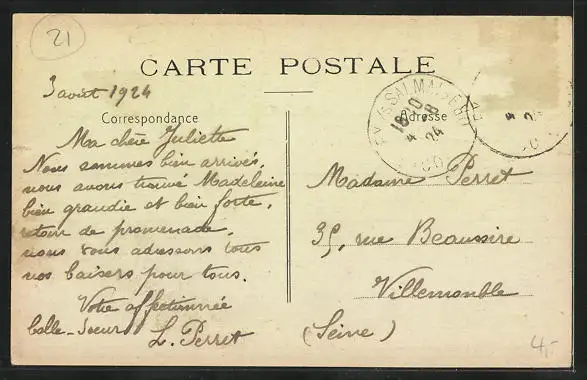 21
CARTE POSTALE
3 août 1924
Correspondance
Adresse
Ma chère Juliette
Nous sommes bien arrivés,
nous avons trouvé Madeleine
bien grandie et bien forte,
retour de promenade,
nous vous adressons tous
nos baisers pour tous.
Votre affectionnée
belle-soeur L. Perret
Madame Perret
35, rue Beaussire
Villemomble
(Seine)
18 30
4 8
24
4
24
4,-